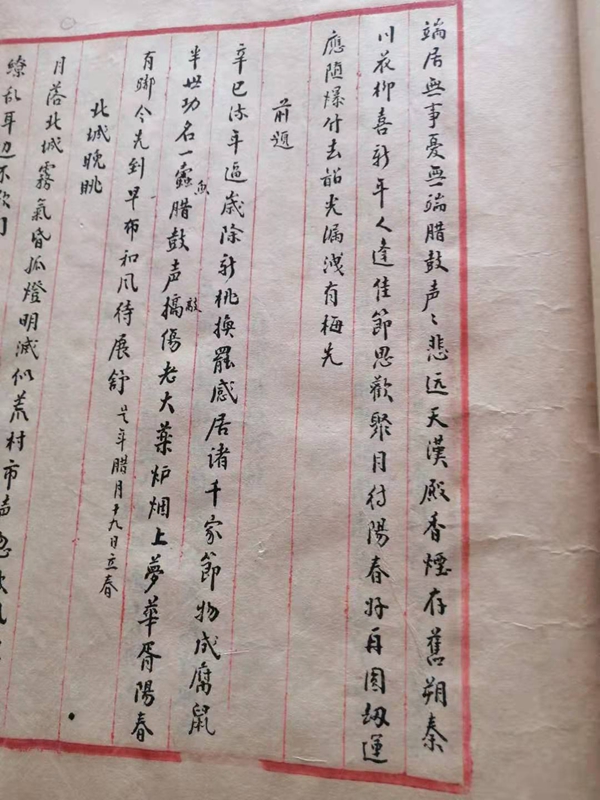 端居無事憂無端腊鼓声々悲远天漢殿香煙存舊朔秦
川花柳喜新年人逢佳節思歡聚月待陽春好再圓劫運
應随爆竹去韶光漏洩有梅先
前題
辛巳流年逼歲除新桃換罷感居諸千家節物成腐鼠
半世功名一蠹魚腊鼓声搞敲傷老大薬炉烟上夢華胥陽春
有脚今先到早布和风待展舒 是年腊月十九日立春
北城晚眺
月落北城霧氣昏孤燈明滅似荒村市声
繚乱耳边不